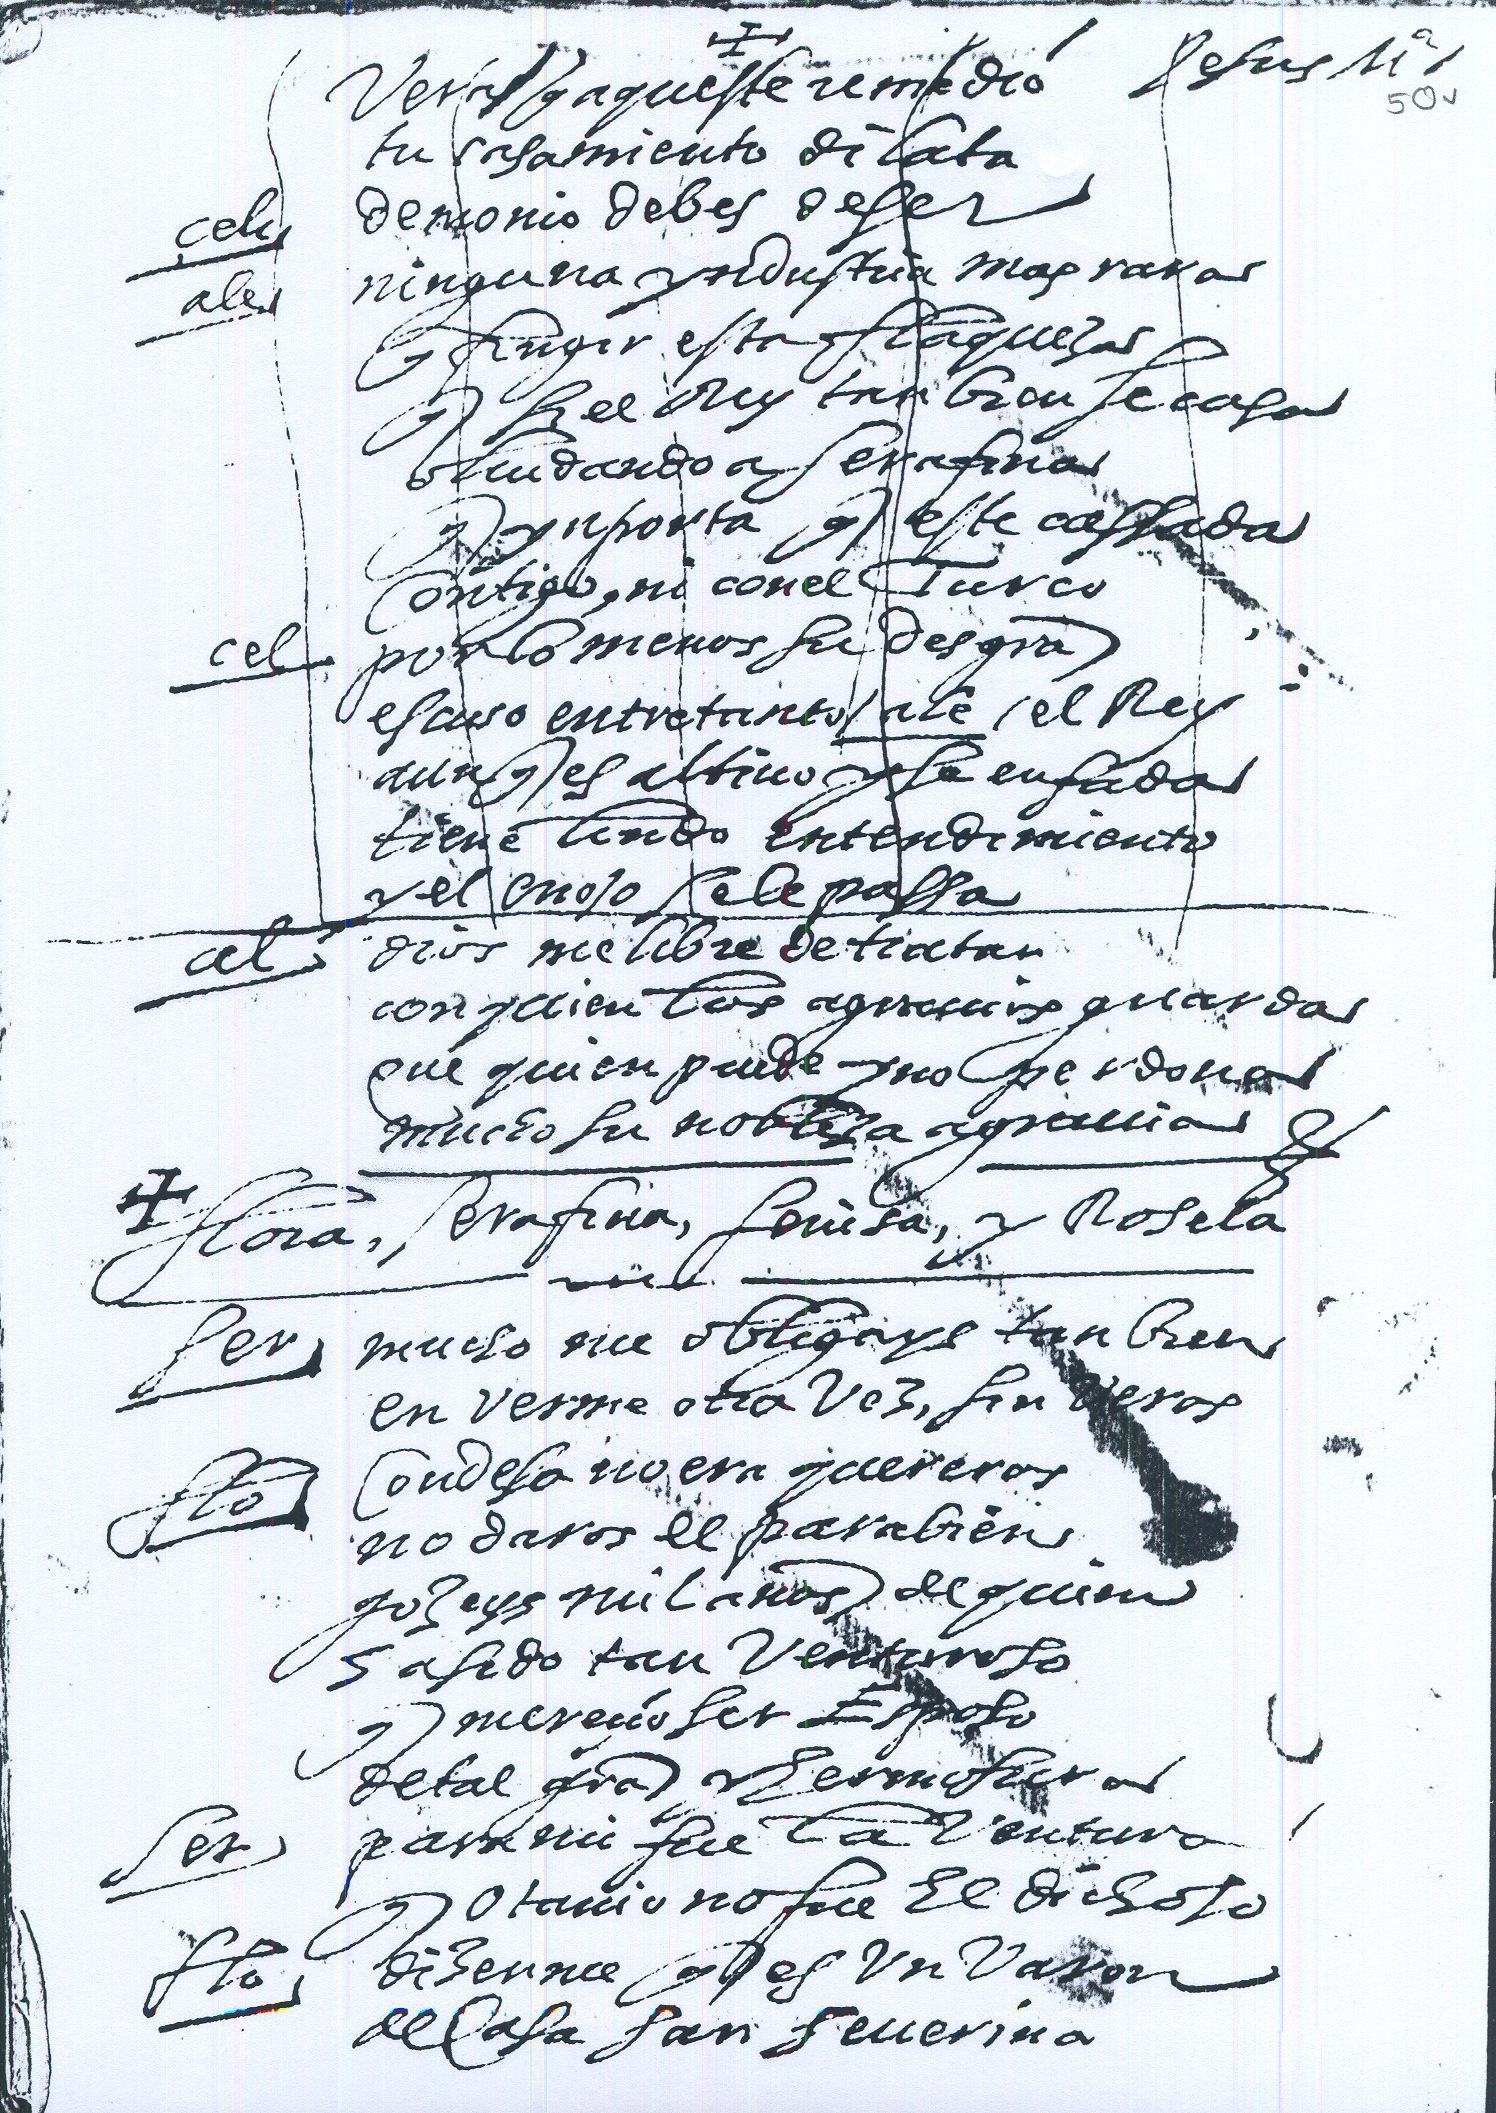 Jesus Mª
50v
Veras q aqueste remedio
tu casamiento dilata
cel demonio debes de ser
ale ninguna yndustria mas rara
q fingir esta flaqueza
q si el Rey tan bien se casa
oluidando a serafina
q ynporta q este cassada
contigo, ni con el Turco
cel por lo menos su desgrª
escuso entretanto / ale / el Rey
aunq es altiuo y se enfada
tiene lindo entendimiento
y el enojo se le passa
al dios me libre de tratar
con quien los agrauios guarda
que quien puede y no perdona
mucho su nobleza agrauia
flora, serafina, fenisa, y Rosela
ser mucho me obligays tan bien
en verme otra vez, sin veros
flo Condesa no era quereros
no daros el parabien
gozeys mil años del quien
a sido tan Venturoso
q mereçio ser Esposo
de tal grª y hermosura
ser para mi fue la Ventura
q Otauio no fue El dichoso
flo dizenme q es Vn Varon
de Casa san seuerina